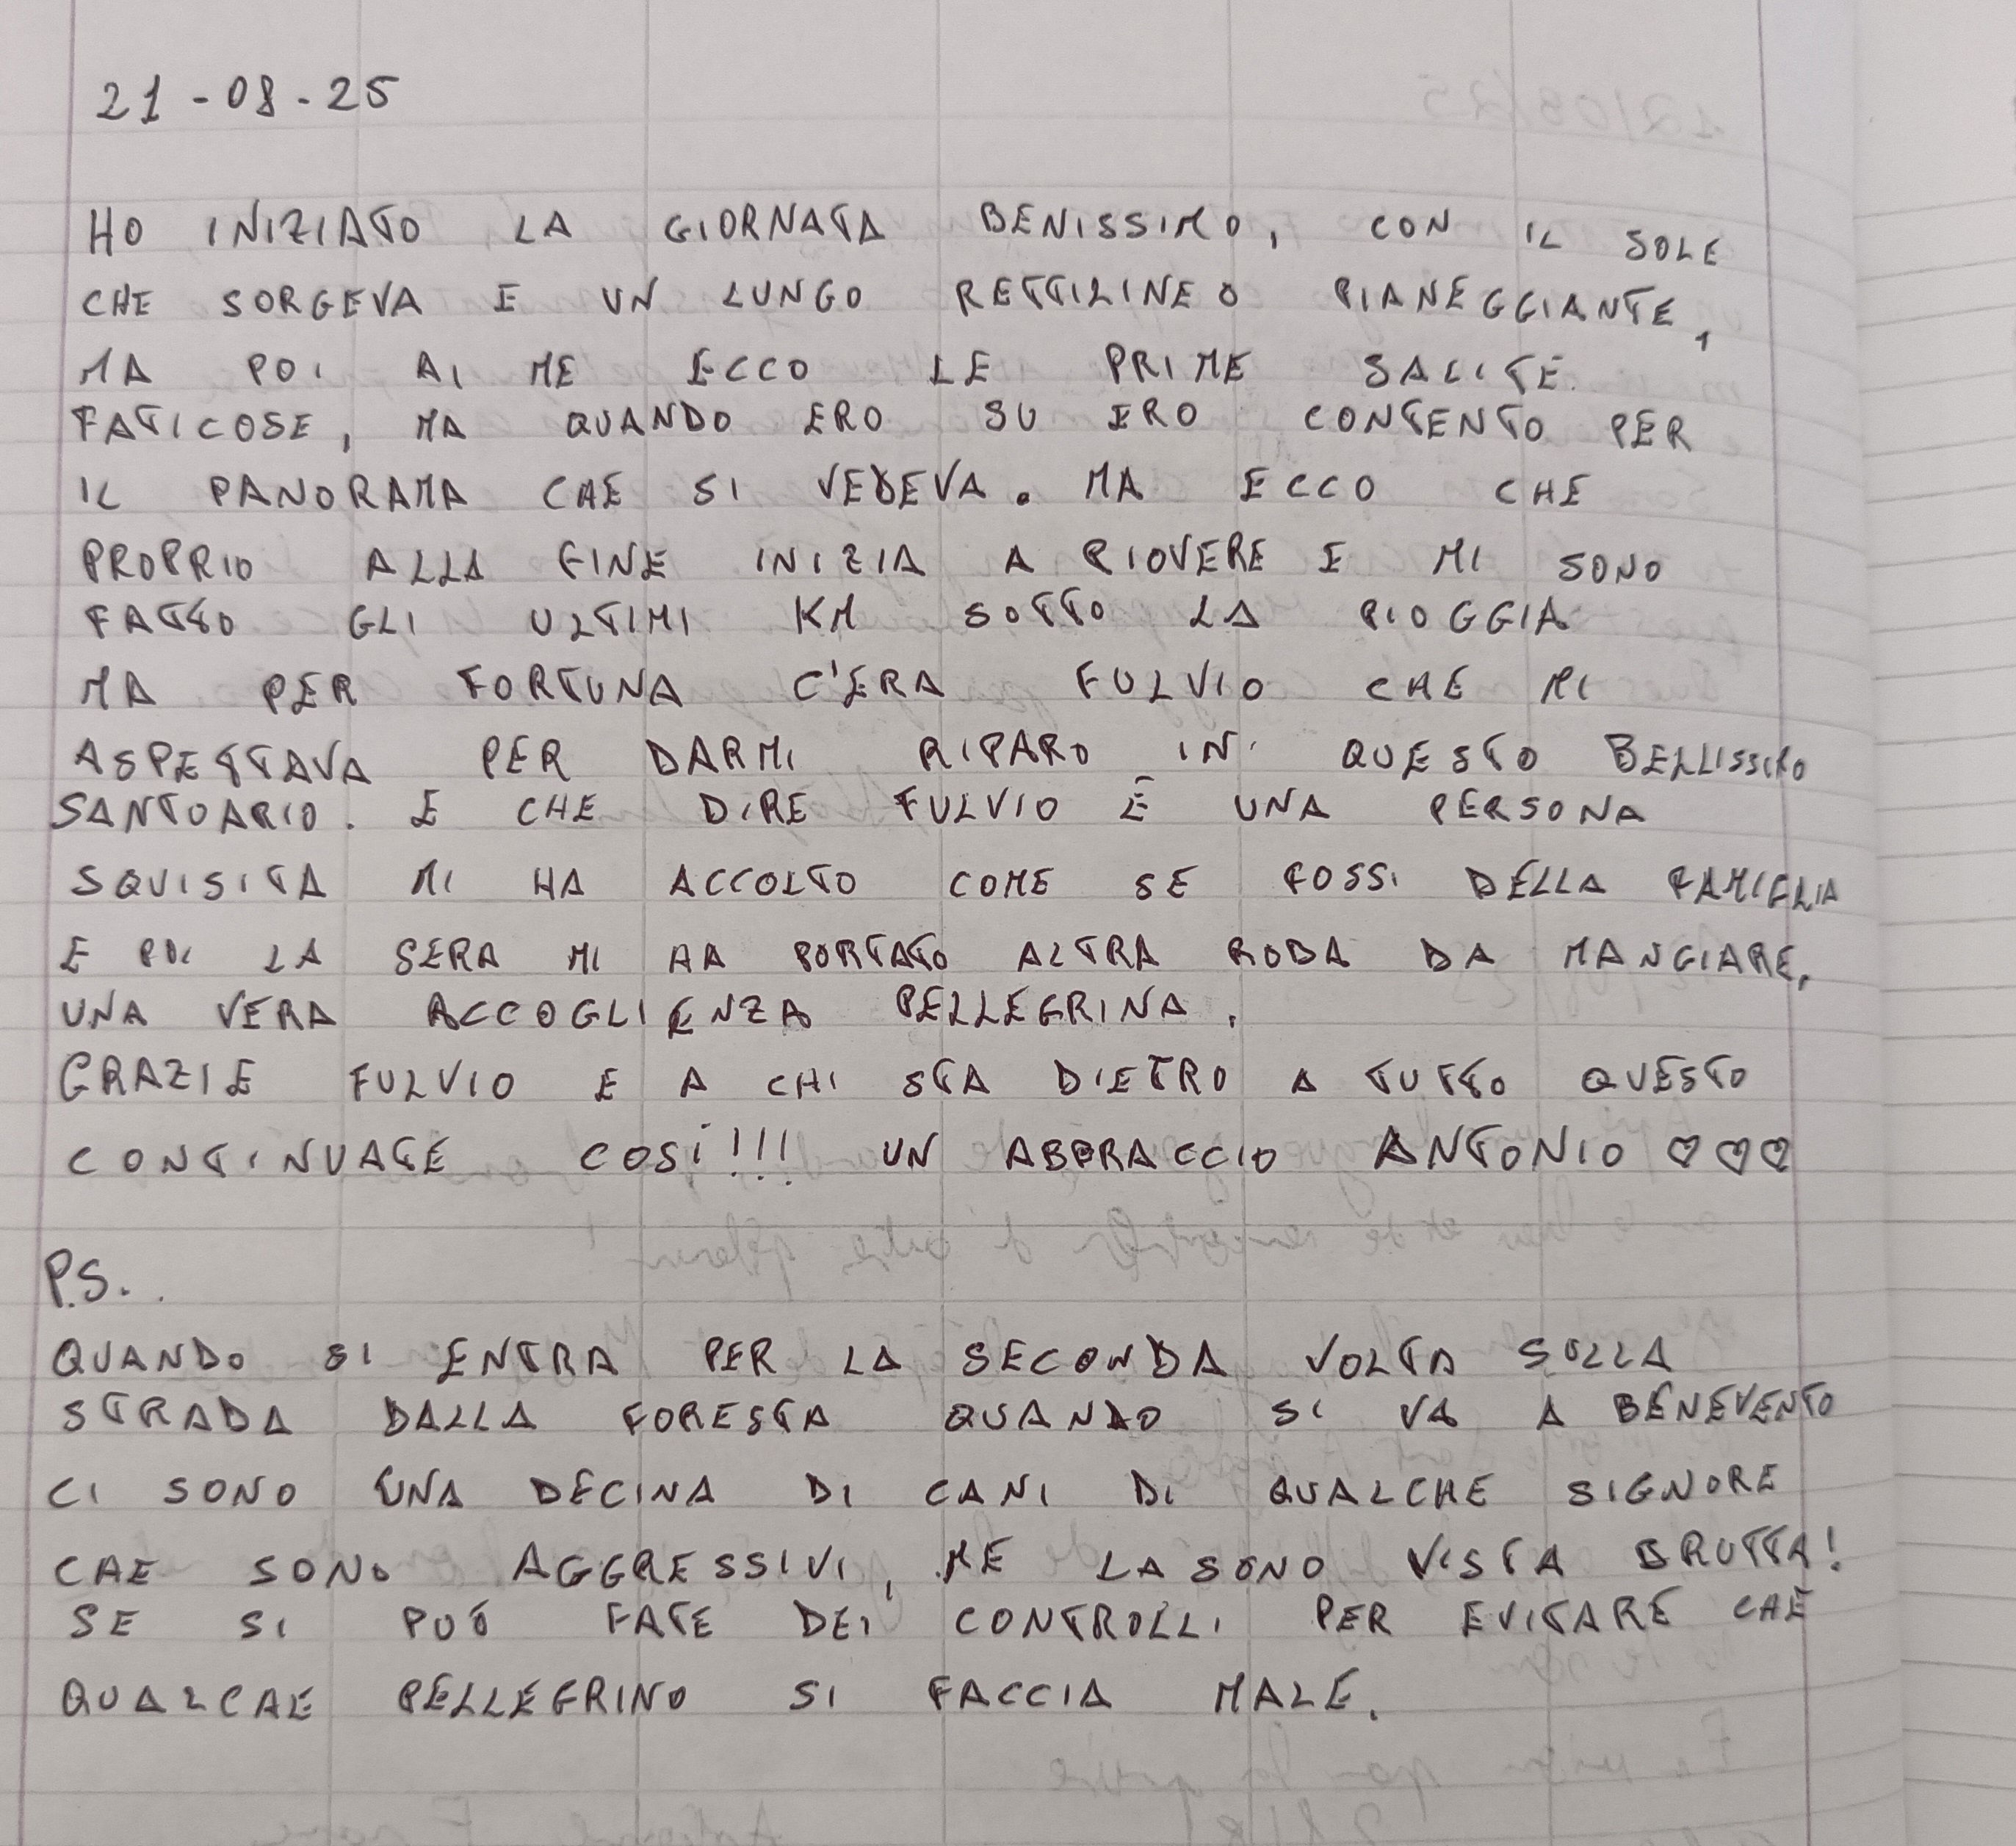 21-08-25
HO INIZIATO LA GIORNATA BENISSIMO, CON IL SOLE
CHE SORGEVA E UN LUNGO RETTILINEO PIANEGGIANTE,
MA POI AI ME ECCO LE PRIME SALITE.
FATICOSE, MA QUANDO ERO SU ERO CONTENTO PER
IL PANORAMA CHE SI VEDEVA. MA ECCO CHE
PROPRIO ALLA FINE INIZIA A PIOVERE E MI SONO
FATTO GLI ULTIMI KM SOTTO LA PIOGGIA
MA PER FORTUNA C'ERA FULVIO CHE MI
ASPETTAVA PER DARMI RIPARO IN QUESTO BELLISSIMO
SANTUARIO. E CHE DIRE FULVIO È UNA PERSONA
SQUISITA MI HA ACCOLTO COME SE FOSSI DELLA FAMIGLIA
E POI LA SERA MI HA PORTATO ALTRA RODA DA MANGIARE,
UNA VERA ACCOGLIENZA PELLEGRINA.
GRAZIE FULVIO E A CHI STA DIETRO A TUTTO QUESTO
CONTINUATE COSÍ!!! UN ABBRACCIO ANTONIO ♡♡♡
P.S..
QUANDO SI ENTRA PER LA SECONDA VOLTA SULLA
STRADA DALLA FORESTA QUANDO SI VA A BENEVENTO
CI SONO UNA DECINA DI CANI DI QUALCHE SIGNORE
CHE SONO AGGRESSIVI, ME LA SONO VISTA BRUTTA!
SE SI PUÓ FATE DEI CONTROLLI PER EVITARE CHE
QUALCHE PELLEGRINO SI FACCIA MALE.